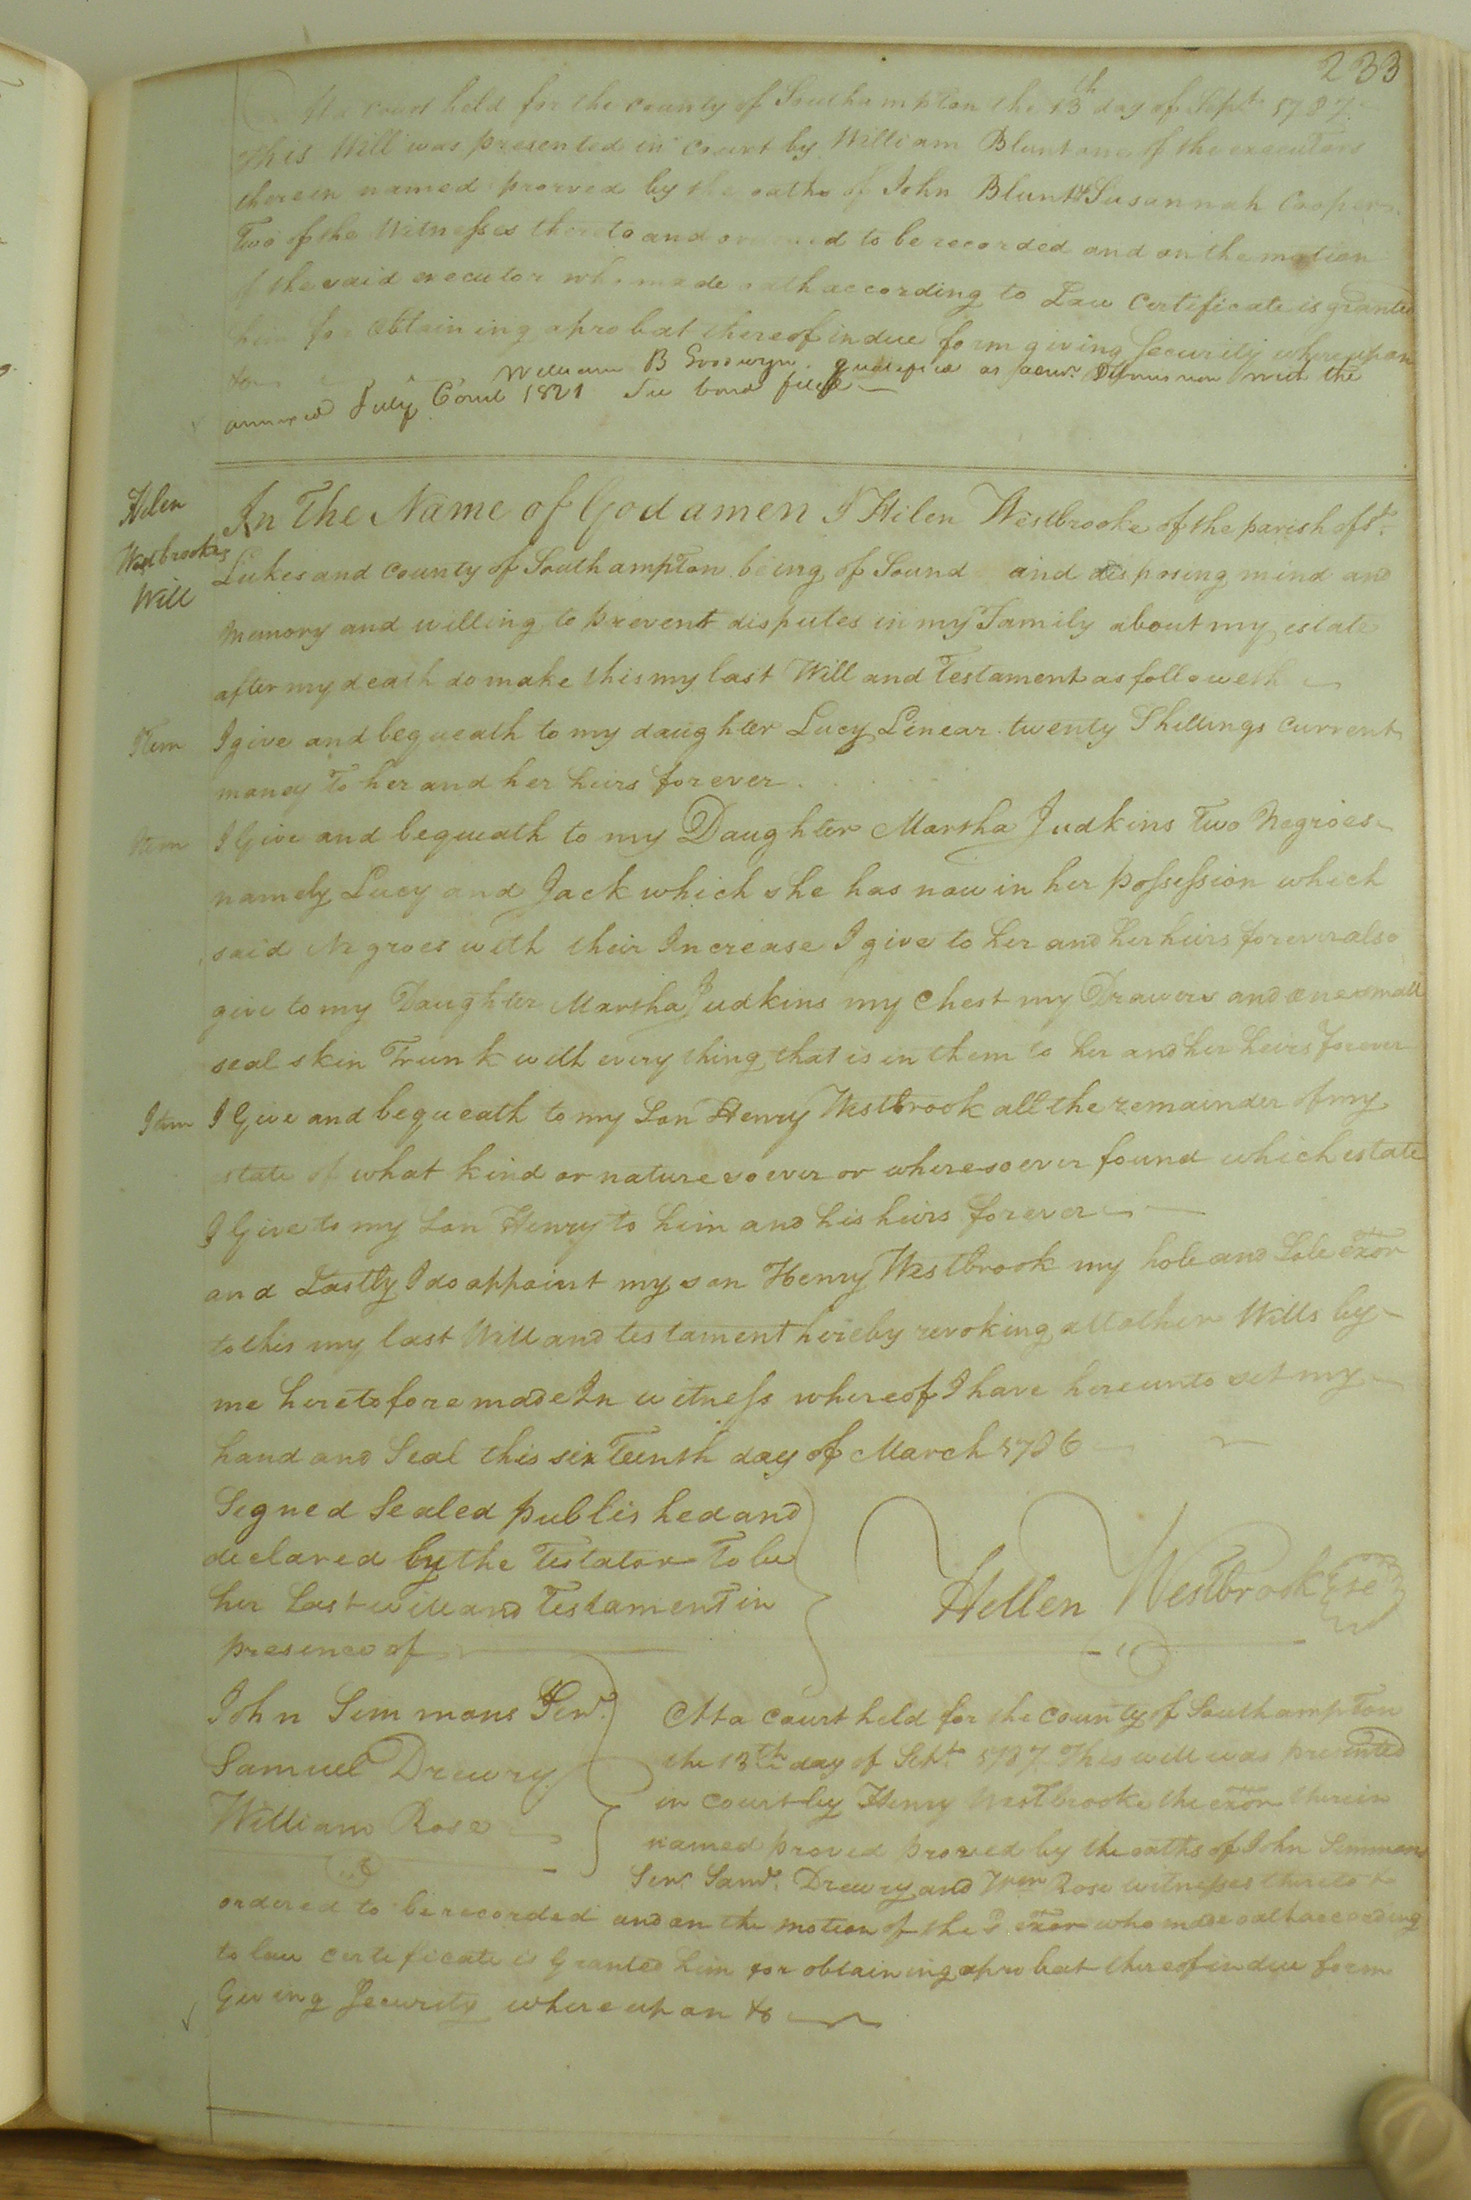 233
At a court held for the county of Southampton the 13th day of Sept. 1787
This Will was presented in Court by William Blunt one of the executors
therein named proved by the oaths of John Blunt & Susannah Cooper
Two of the Witnesses thereto and ordered to be recorded and on the motion
of the said executor who made oath according to Law Certificate is granted
him for obtaining a probat thereof in due form giving Security whereupon
William B Goodwyn qualified as admr. with the
annexed July Court 1821 See bond filed
Helen
Westbrooks
Will
In The Name of God amen I Hilen Westbrooke of the parish of St.
Lukes and county of Southampton being of Sound and disposing mind and
memory and willing to prevent disputes in my Family about my estate
after my death do make this my last Will and Testament as followeth
Item I give and bequeath to my daughter Lucy Linear twenty Shillings current
money To her and her heirs forever.
Item I Give and bequeath to my Daughter Marsha Judkins Two Negroes
namely Lucy and Jack which she has now in her possession which
said Negroes with their Increase I give to her and her heirs forever also
give to my Daughter Marsha Judkins my Chest my Drawers and one small
seal skin Trunk with every thing that is in them to her and her heirs forever
Item I Give and bequeath to my Son Henry Westbrook all the remainder of my
estate of what kind or nature soever or wheresoever found which estate
I Give to my Son Henry to him and his heirs forever
and Lastly I do appoint my son Henry Westbrook my hole and Sole exor
to this my last Will and testament hereby revoking all other Wills by
me heretofore made In witness whereof I have hereunto set my
hand and Seal this sixTeenth day of March 1786
Signed Sealed published and
declared by the Testator To be
her Last will and Testament in
presence of
Hellen Westbrook Se
John Simmons Senr.
Samuel Drewry
William Rose
At a Court held for the county of Southampton
the 13th day of Sept. 1787 This will was presented
in Court by Henry Westbrooke the exor therein
named proved proved by the oaths of John Simmons
Senr. Saml. Drewry and Wm Rose witnesses thereto &
ordered to be recorded and on the motion of the sd. exor who made oath according
to law certificate is Granted him for obtaining a probat thereof in due form
Giving Security whereupon &